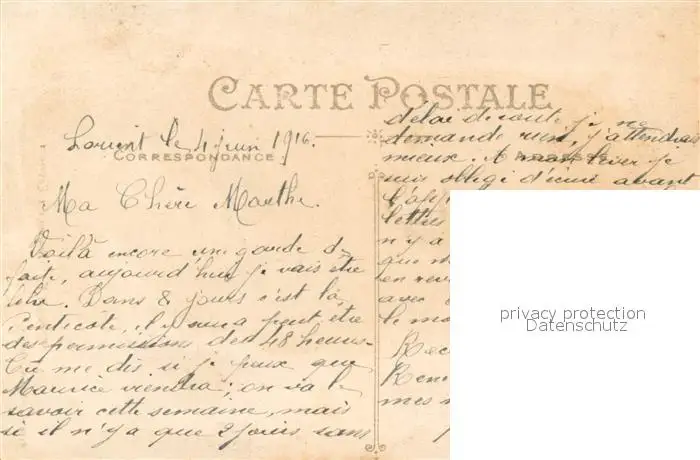 CARTE POSTALE
CORRESPONDANCE
Lorient le 4 juin 1916.
Ma Chère Marthe.
Voilà encore une garde de
faite, aujourd'hui je vais être
libre. Dans 8 jours c'est la
Pentecôte, il y aura peut être
des permissions de 48 heures.
Tu me dis si je peux que
Maurice viendra ; on va le
savoir cette semaine, mais
si il n'y a que 2 jours sans
délai de route je ne
demande rien, j'attendrai
mieux. A
suis obligé d'écrire avant
l'ap
lettres
n'y a
que m
en rev
avec
le mo
Rec
Rene
mes n
privacy protection
Datenschutz